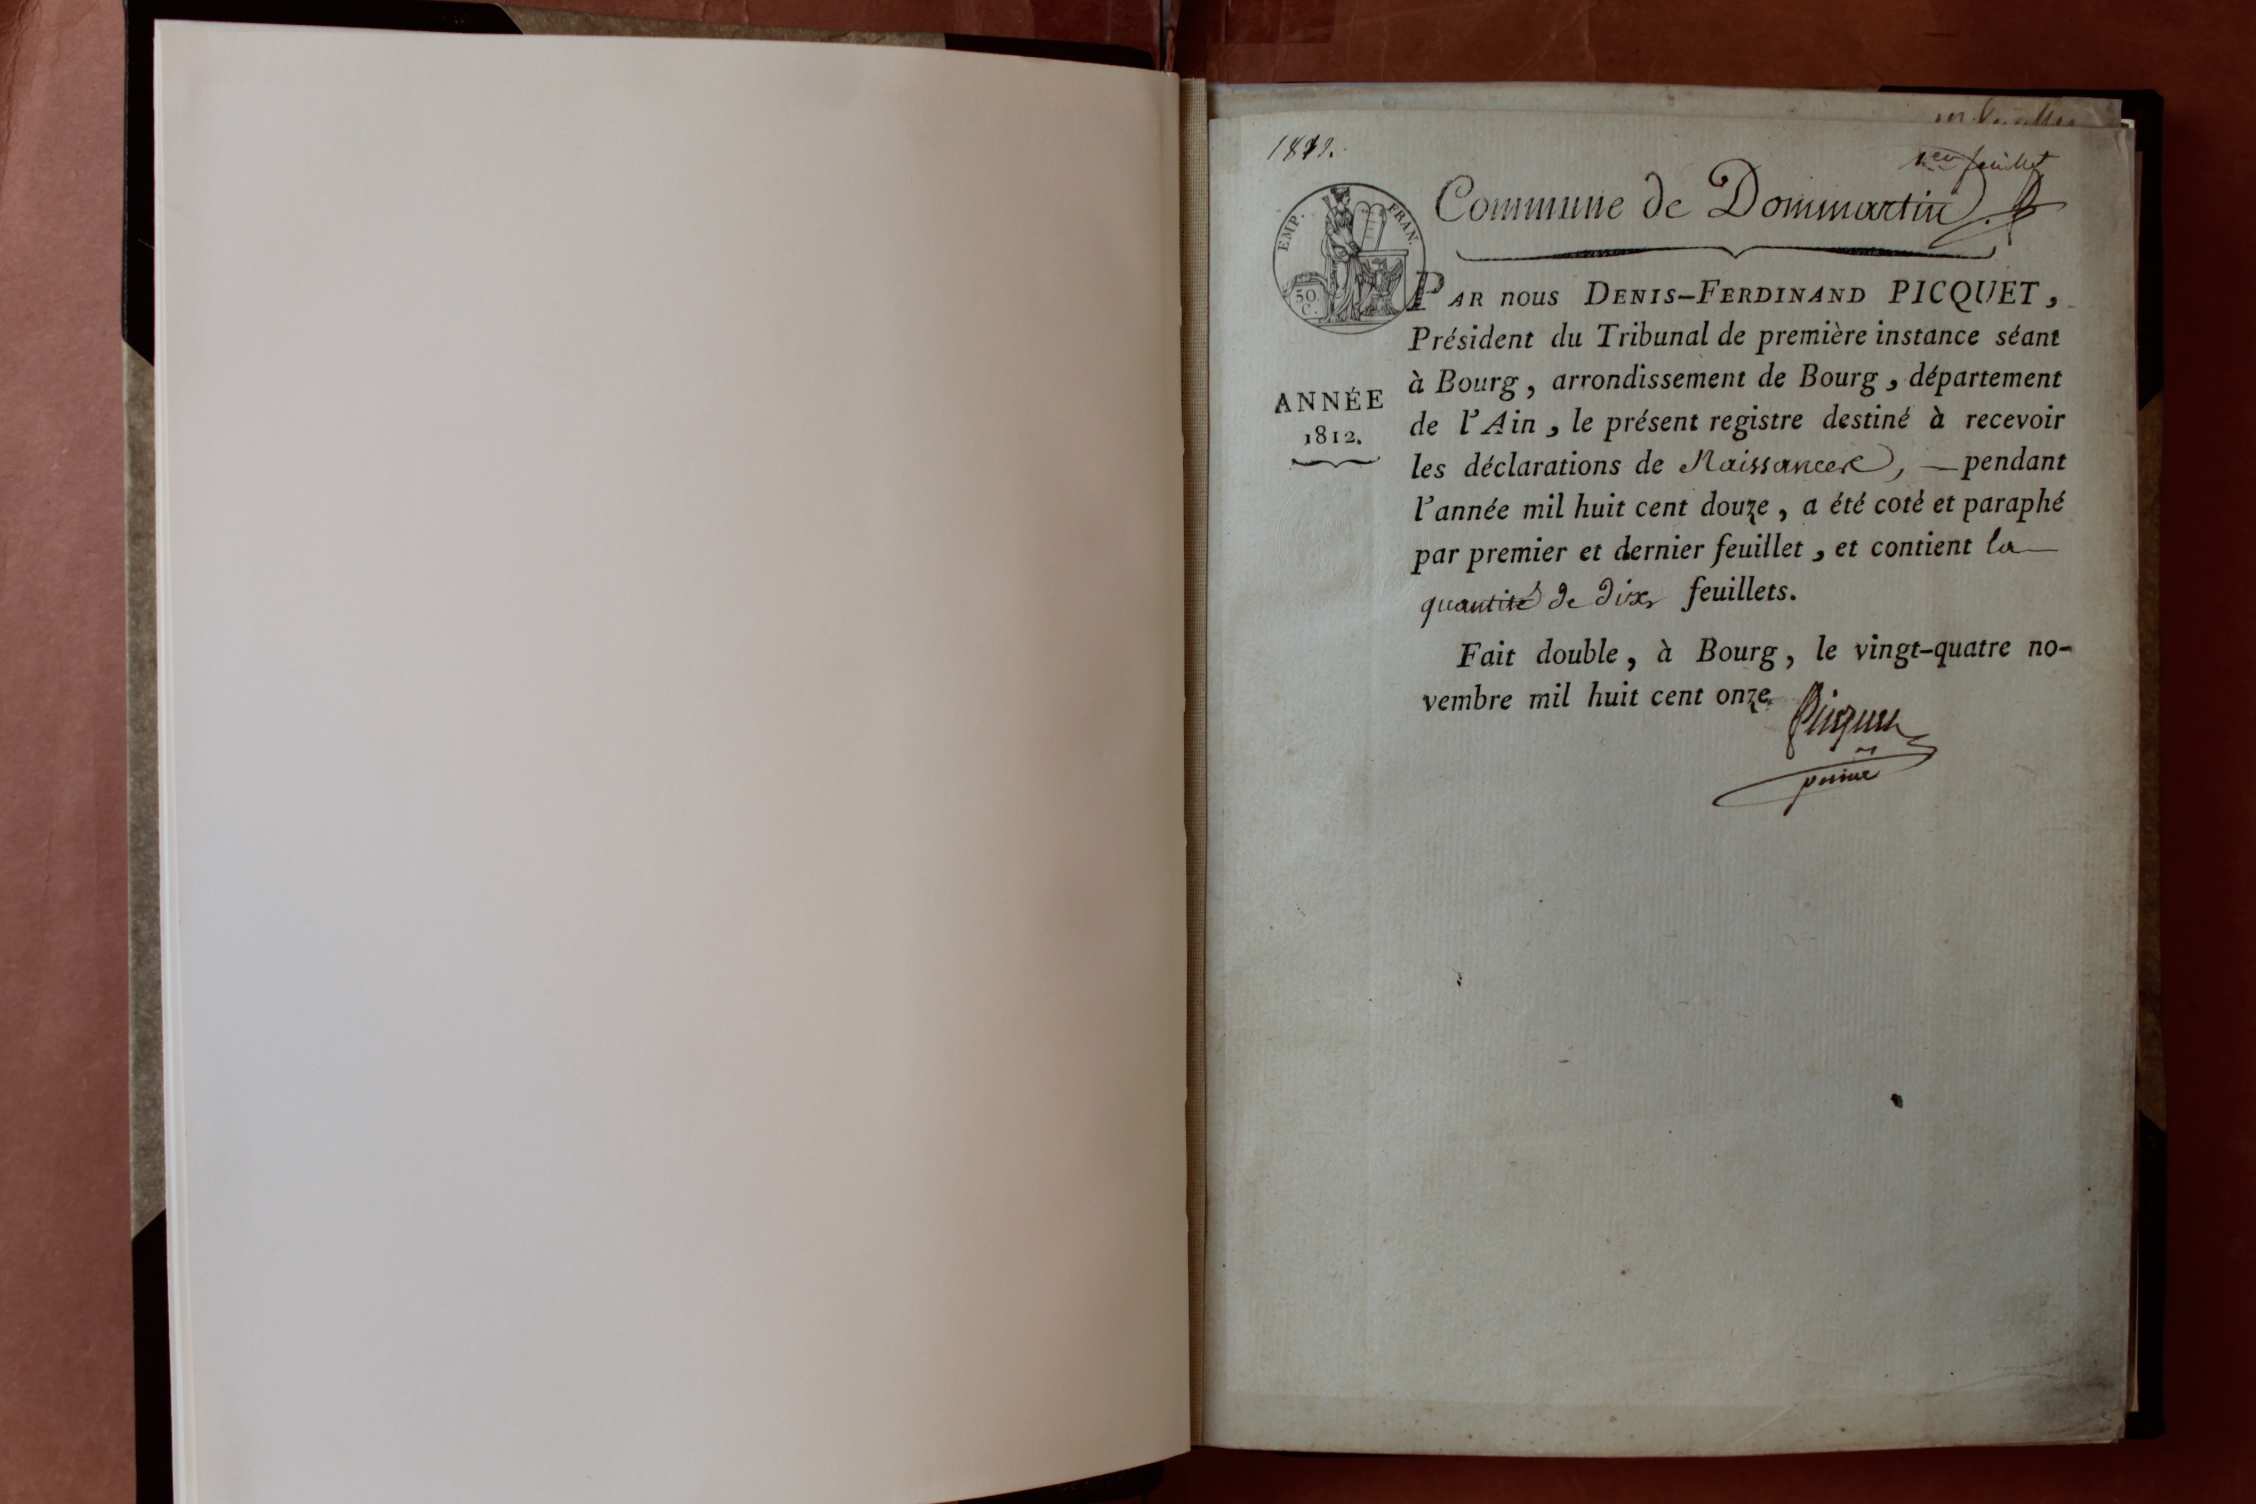 1812.
1er feuillet
Commune de Dommartin
EMP. FRAN.
50 C.
PAR nous DENIS-FERDINAND PICQUET,
Président du Tribunal de première instance séant
à Bourg, arrondissement de Bourg, département
de l'Ain, le présent registre destiné à recevoir
les déclarations de Naissances, — pendant
l'année mil huit cent douze, a été coté et paraphé
par premier et dernier feuillet, et contient la —
quantité de dix feuillets.
Fait double, à Bourg, le vingt-quatre no-
vembre mil huit cent onze.
Picquet
ANNÉE
1812.